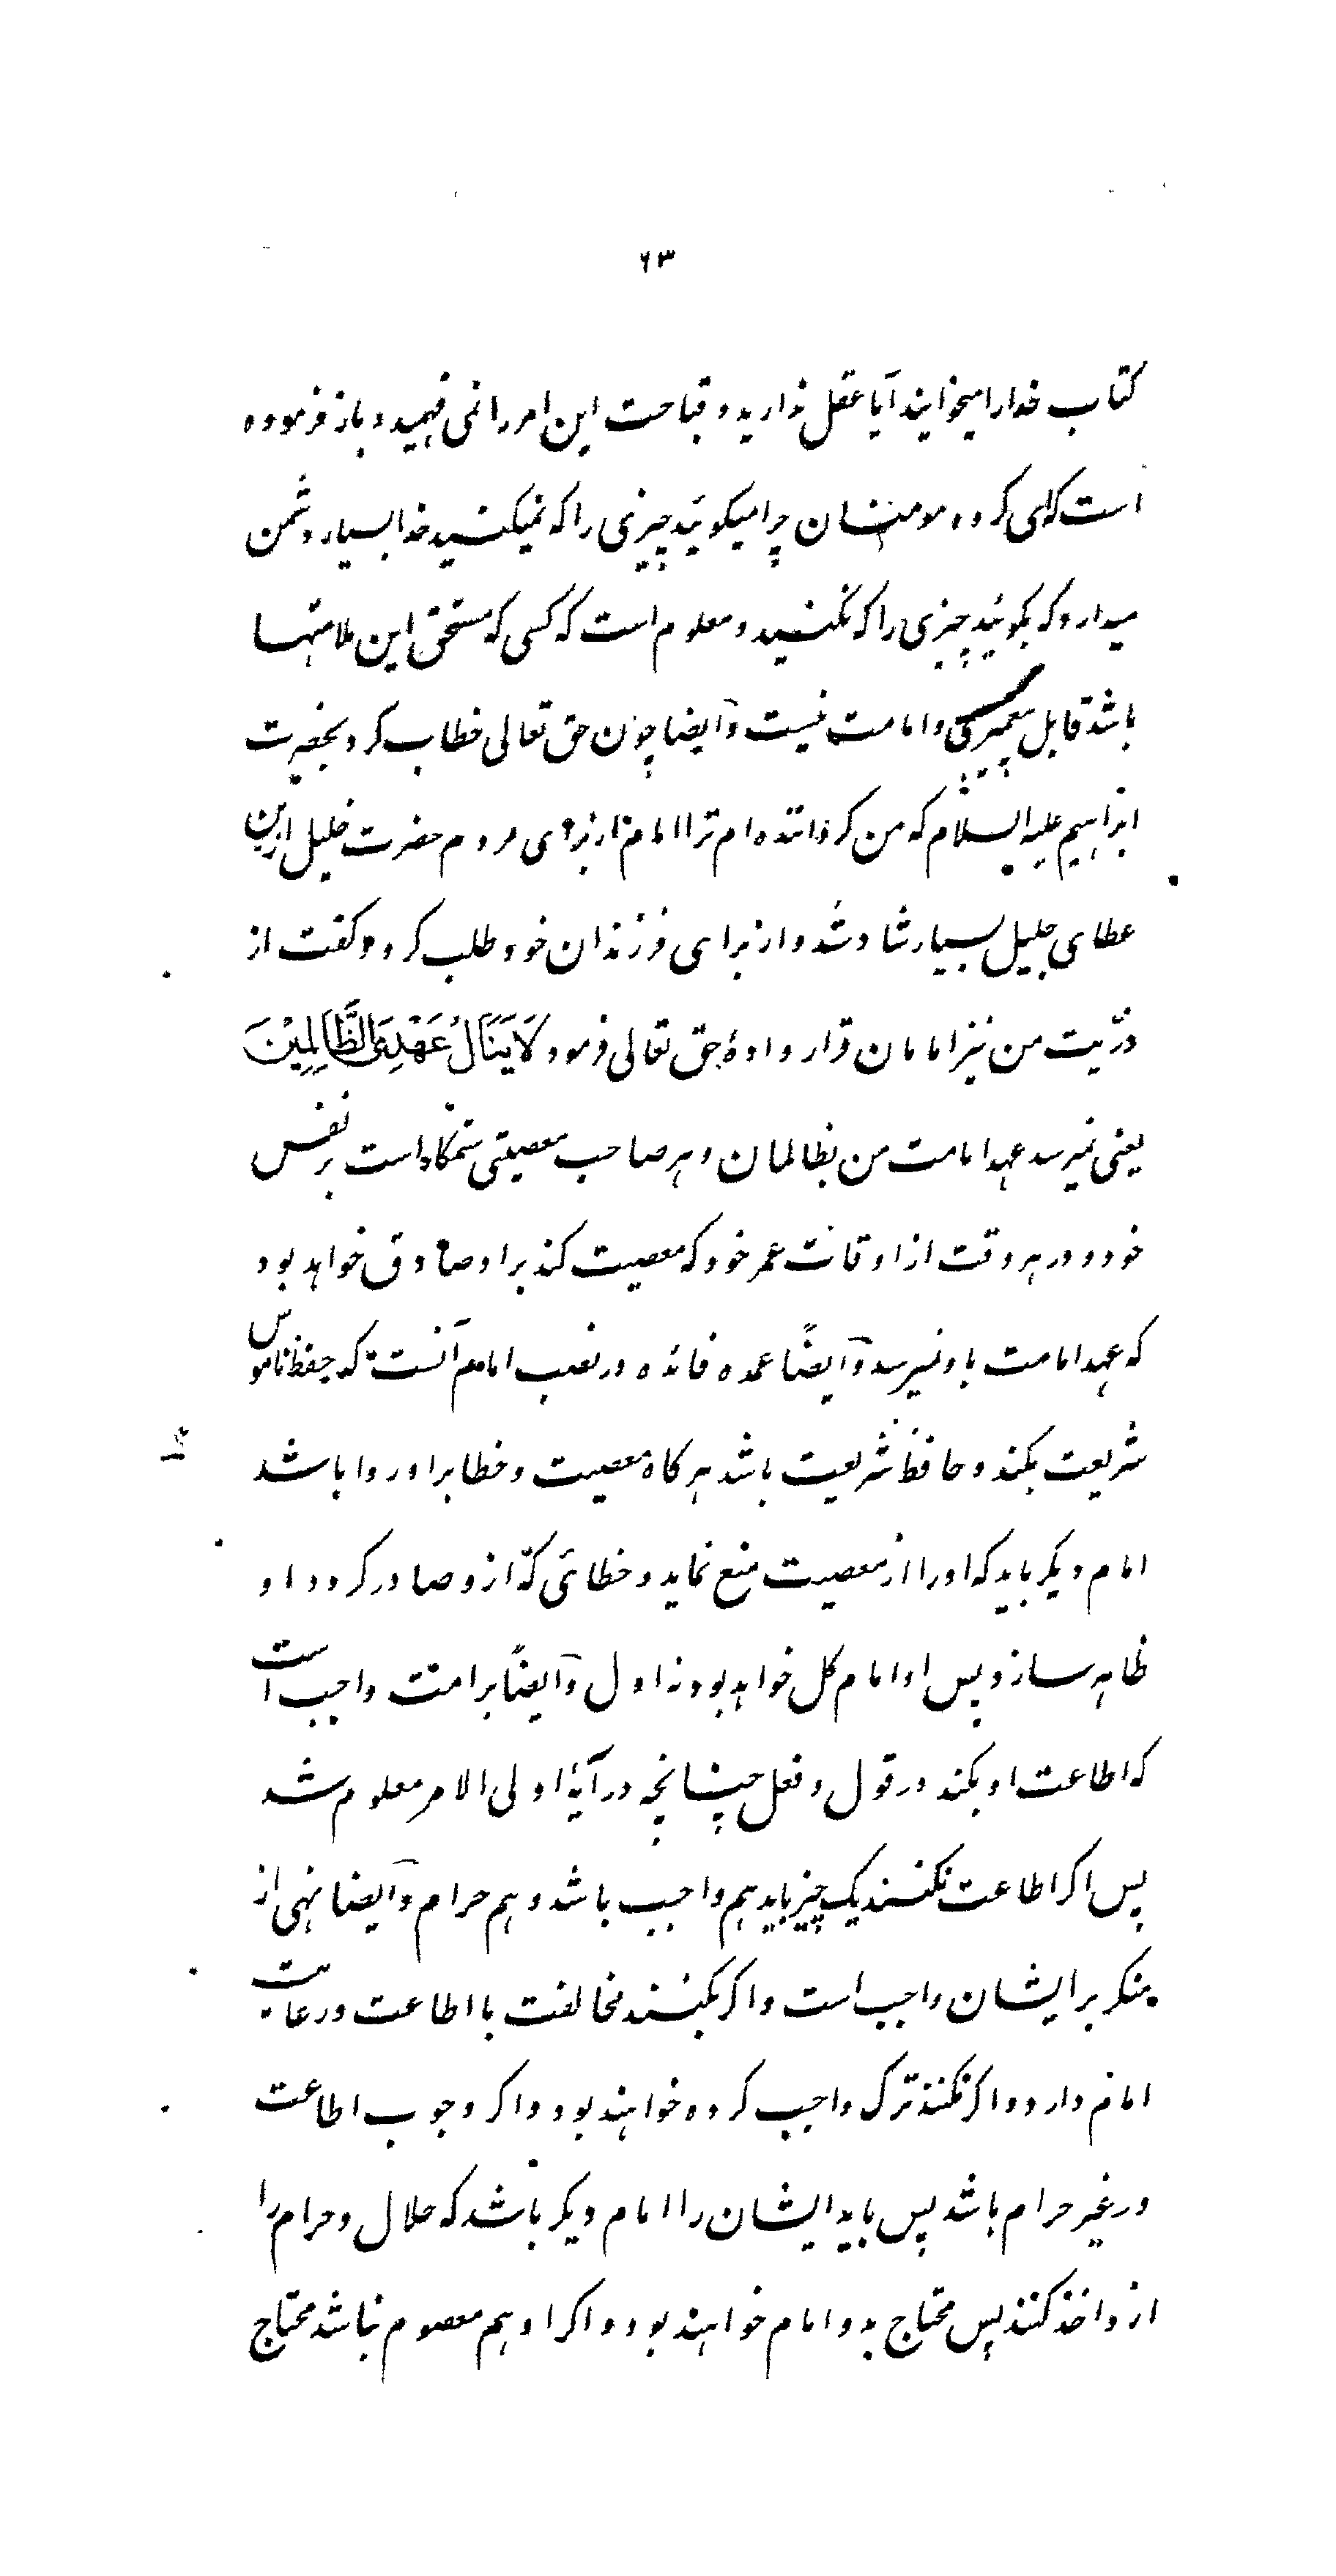 ۶۳
کتاب خدا را میخوانید آیا عقل ندارید و قباحت این امر را نمی فهمید و باز فرموده
است که ای کروه مومنان چرا میکوئید چیزی را که نمیکنید خدا بسیار دشمن
میدارد که بکوئید چیزی را که نکنید و معلوم است که کسی که مستحق این ملامتها
باشد قابل پیغمبری و امامت نیست و آیضا چون حق تعالی خطاب کرد بحضرت
ابراهیم علیه السلام که من کردانندەام ترا امام از برای مردم حضرت خلیل ازین
عطای جلیل بسیار شاد شد و از برای فرزندان خود طلب کرد و کفت از
ذرّیت من نیز امامان قرار دادۀ حق تعالی فرمود لَا یَنَالُ عَهْدِی الظَّالِمِیْنَ
یعنی نمیرسد عهد امامت من بظالمان و هر صاحب معصیتی ستمکار است بر نفس
خود و در هر وقت از اوقات عمر خود که معصیت کند بر او صادق خواهد بود
که عهد امامت باو نمیرسد و آیضًا عمده فائده در نصب امام آنست که حفظ ناموس
شریعت بکند و حافظ شریعت باشد هرکاه معصیت و خطا بر او روا باشد
امام دیکر باید که او را از معصیت منع نماید و خطائی که ازو صادر کردد او
ظاهر سازد پس او امام کل خواهد بود نه اول و آیضًا بر امت واجب است
که اطاعت او بکند در قول و فعل چنانچه در آیۀ اولی الامر معلوم شد
پس اکر اطاعت نکنند یک چیز باید هم واجب باشد و هم حرام و آیضا نهی از
منکر بر ایشان واجب است و اکر بکنند مخالفت با اطاعت و رعایت
امام دارد و اکر نکنند ترک واجب کرده خواهند بود و اکر وجوب اطاعت
در غیر حرام باشد پس باید ایشان را امام دیکر باشد که حلال و حرام را
ازو اخذ کنند پس محتاج بدو امام خواهند بود و اکر او هم معصوم نباشد محتاج